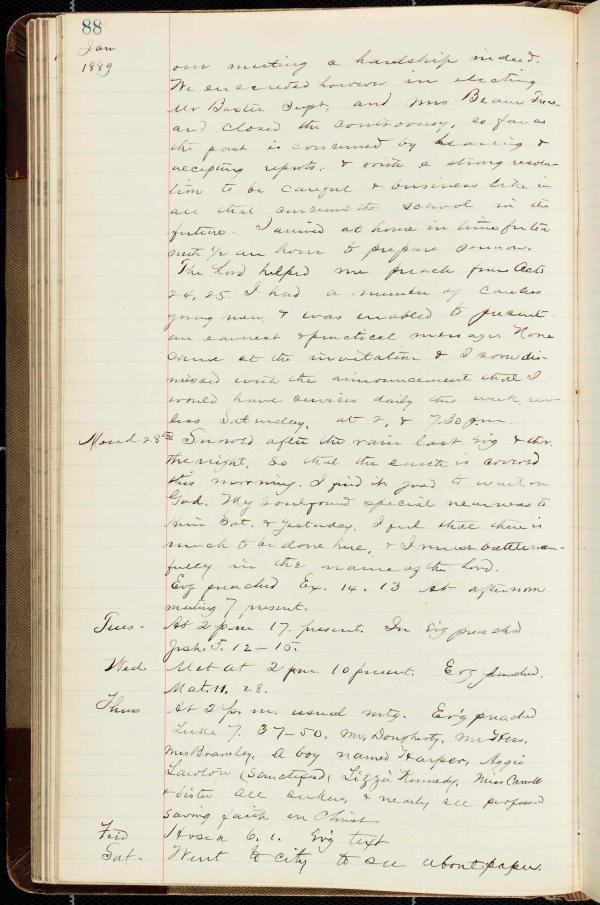 88
Jan
1889
our meeting a hardship indeed.
We succeeded however in electing
Mr Baxter Supt. and Mrs Beam Treas-
and closed the controversy, so far as
the past is concerned by hearing &
accepting reports. & with a strong resolu-
tion to be careful & business like in
all that concerns the school in the
future. I arrived at home in time for tea
with 1/2 an hour to prepare sermon.
The Lord helped me preach from Acts
24, 25. I had a number of careless
young men, & was enabled to present
an earnest & practical message. None
came at the invitation & I soon dis-
missed with the announcement that I
would have services daily this week, un-
less Saturday, at 2, & 7.30 p.m.
Mond 28th Snowed after the rain last Evg & thro.
the night, so that the earth is covered
this morning. I find it good to wait on
God. My soul found special nearness to
Him Sat. & yesterday. I feel that there is
much to be done here, & I must battle man-
fully in the name of the Lord.
Evg preached Ex. 14. 13 At afternoon
meeting 7 present.
Tues. - At 2 p.m 17. present. In Evg preached
Josh. 5. 12 - 15.
Wed. Met at 2 p.m. 10 present. Evg preached.
Mat. 11. 28.
Thurs At 2 p.m. usual mtg. Ev'g preached
Luke 7. 37-50. Mr. Dougherty, Mr Hess,
Mrs Bramley, A boy named Harper, Aggie
Lawton (Sanctified, Lizzie Kennedy, Miss Carroll
& Sister all seekers, & nearly all professed
saving faith in Christ.
Frid Hosea 6. 1. Ev'g text
Sat. - Went to city to see about paper.